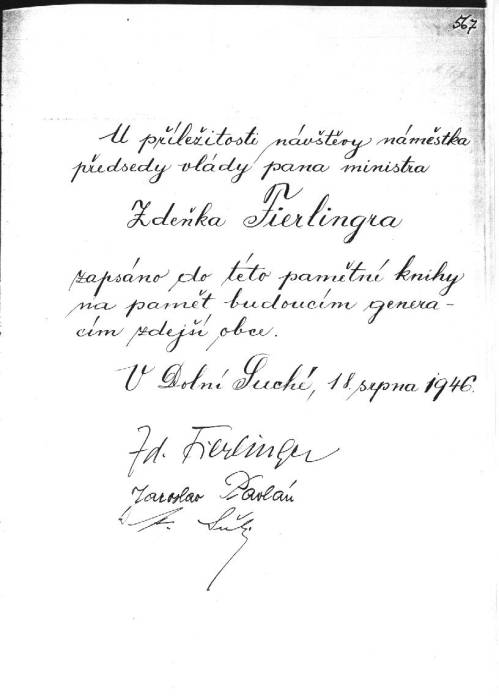 567
U příležitosti návštěvy náměstka
předsedy vlády pana ministra
Zdeňka Fierlingra
zapsáno do této pamětní knihy
na paměť budoucím genera-
cím zdejší obce.
V Dolní Suché, 18. srpna 1946.
Zd. Fierlinger
Jaroslav